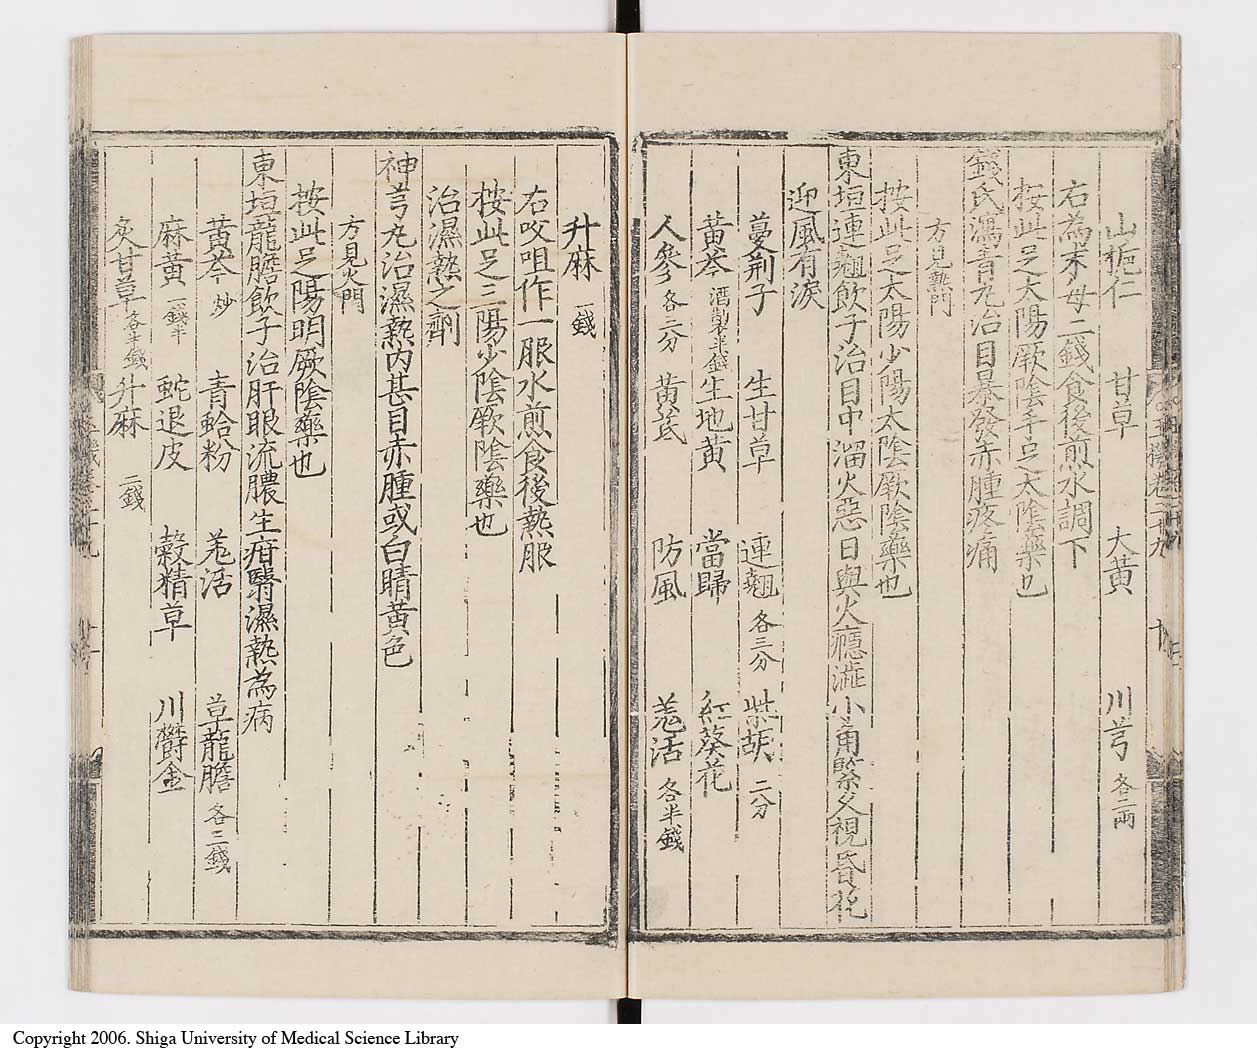 山梔仁　甘草　大黃　川芎各二兩
右為末每二錢食後煎水調下
按此足太陽厥陰手足太陰藥也
錢氏瀉青丸治目暴發赤腫疼痛
方見熱門
按此足太陽少陽太陰厥陰藥也
東垣連翹飲子治目中溜火惡日與火癮澁小角緊久視昏花
迎風有淚
蔓荆子　生甘草　連翹各三分　柴胡二分
黃芩酒製半錢　生地黃　當歸　紅葵花
人參各三分　黃芪　防風　羗活各半錢
升麻一錢
右㕮咀作一服水煎食後熱服
按此足三陽少陰厥陰藥也
治濕熱之劑
神芎丸治濕熱內甚目赤腫或白睛黃色
方見火門
按此足陽明厥陰藥也
東垣龍膽飲子治肝眼流膿生疳翳濕熱為病
黃芩炒　青蛤粉　羗活　草龍膽各三錢
麻黃一錢半　蛇退皮　穀精草　川欝金
炙甘草各半錢　升麻二錢
Copyright 2006. Shiga University of Medical Science Library